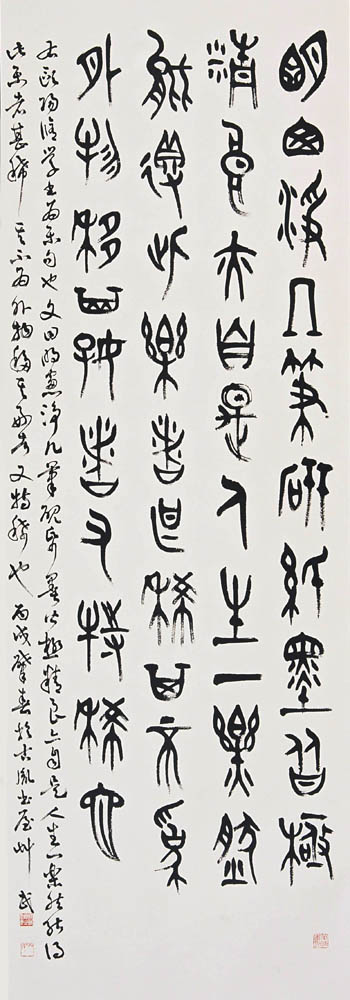 明窗淨几筆研紙墨皆極
精良亦自是人生一樂然
能得此樂者甚稀其不為
外物移其好者又特稀也
右歐陽脩学书為樂句也文曰明窗淨几筆硯紙墨皆極精良亦自是人生一樂然能得
此樂者甚稀其不為外物移其好者又特稀也丙戌肇春於古風书屋艸武